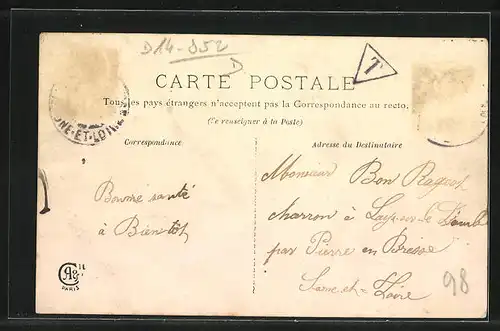 D14-852
T
CARTE POSTALE
Tous les pays étrangers n'acceptent pas la Correspondance au recto,
(Se renseigner à la Poste)
Correspondance
Adresse du Destinataire
Bonne santé
à Bientôt
Monsieur Bon
charron à Lays-sur-le Doubs
par Pierre en Bresse
Saone-et-Loire
98
ONE-ET-LOIRE
PARIS